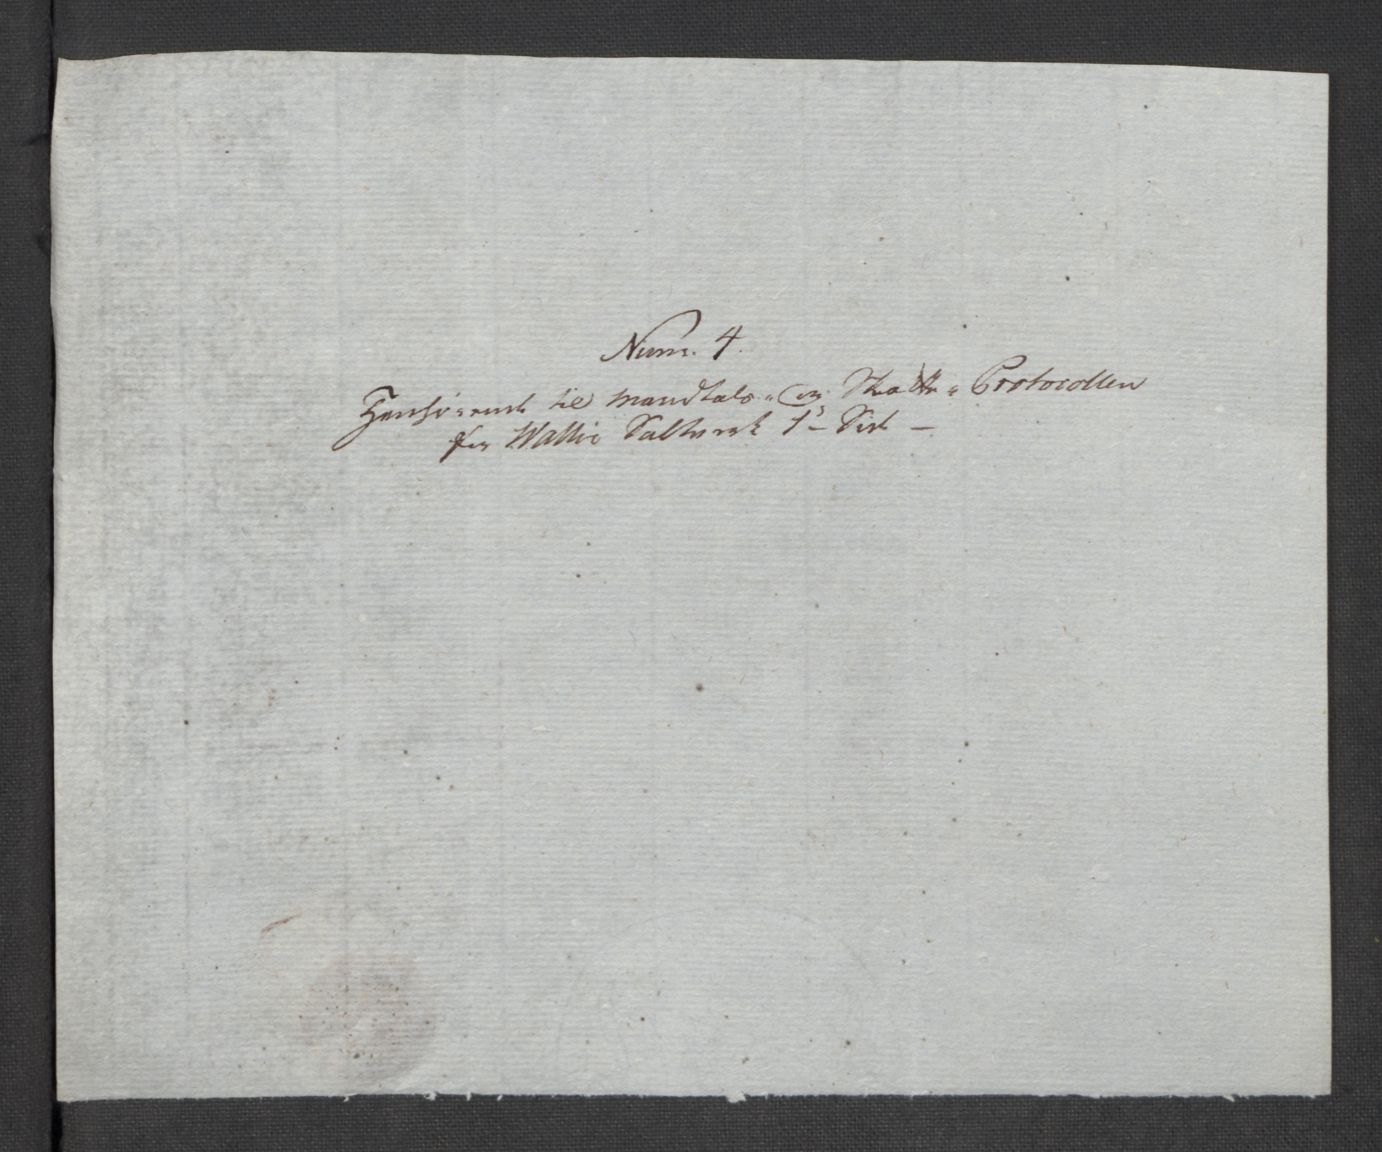 Num. 4.
Henhørende til Mandtals- og Skatte- Protocollen
for Walløe Saltverk 1te Side —